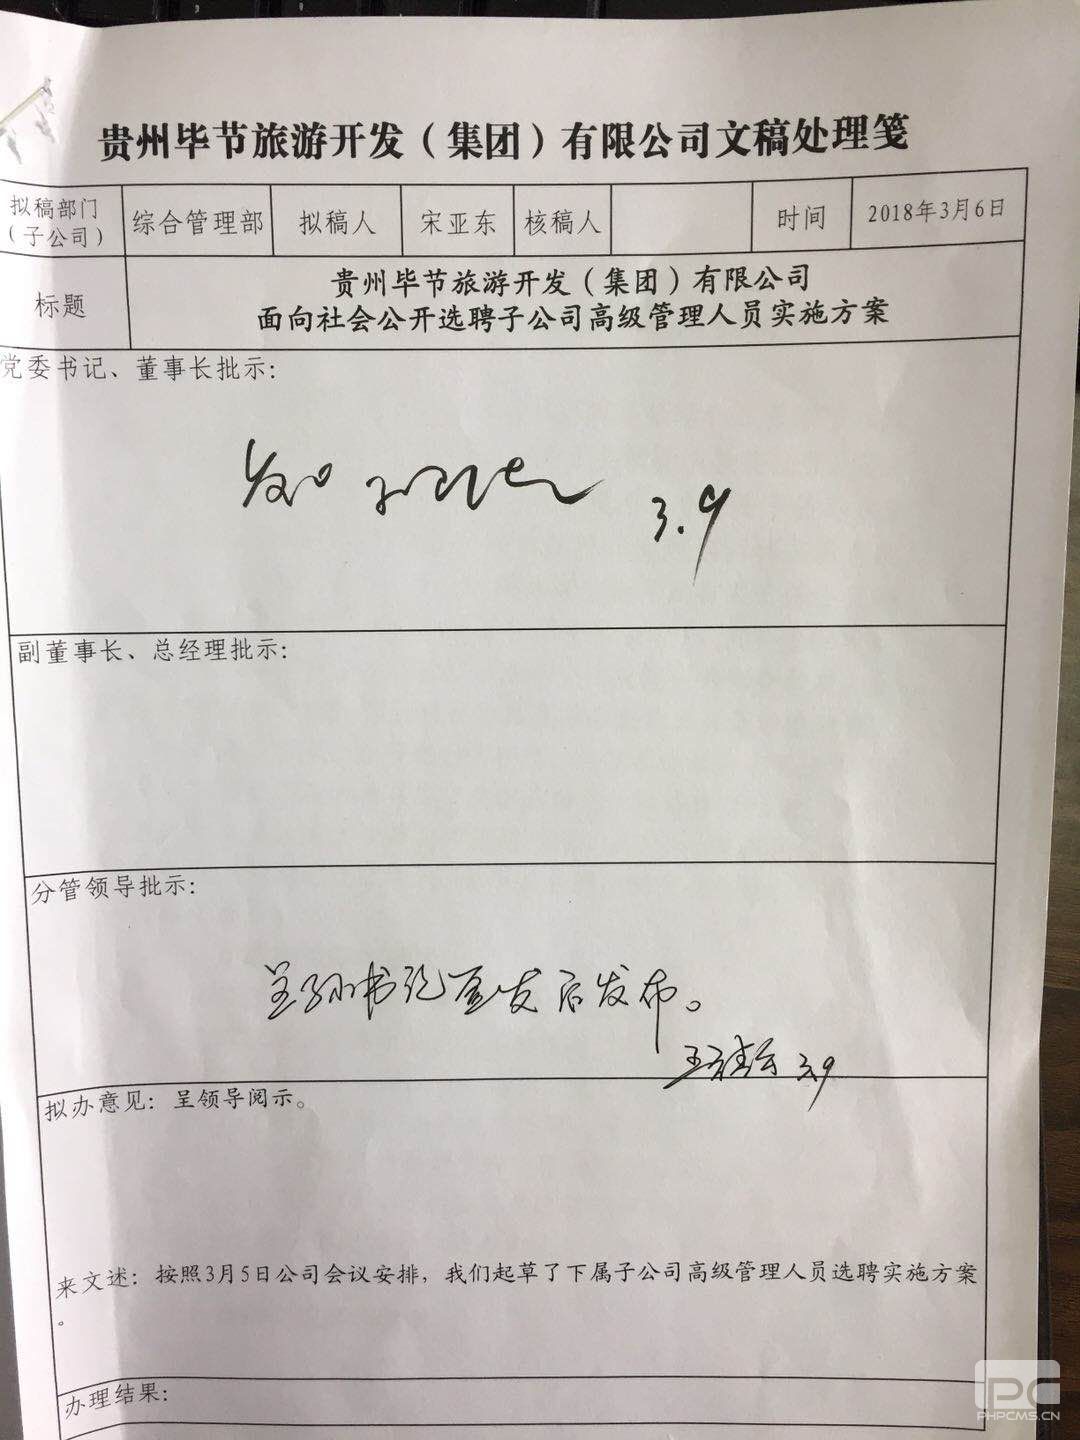 贵州毕节旅游开发（集团）有限公司文稿处理笺
拟稿部门
（子公司）
综合管理部
拟稿人
宋亚东
核稿人
时间
2018年3月6日
标题
贵州毕节旅游开发（集团）有限公司
面向社会公开选聘子公司高级管理人员实施方案
党委书记、董事长批示：
发
3.9
副董事长、总经理批示：
分管领导批示：
呈孙书记签发后发布。
3.9
拟办意见：呈领导阅示。
来文述：按照3月5日公司会议安排，我们起草了下属子公司高级管理人员选聘实施方案
。
办理结果：
PC
PHPCMS.CN